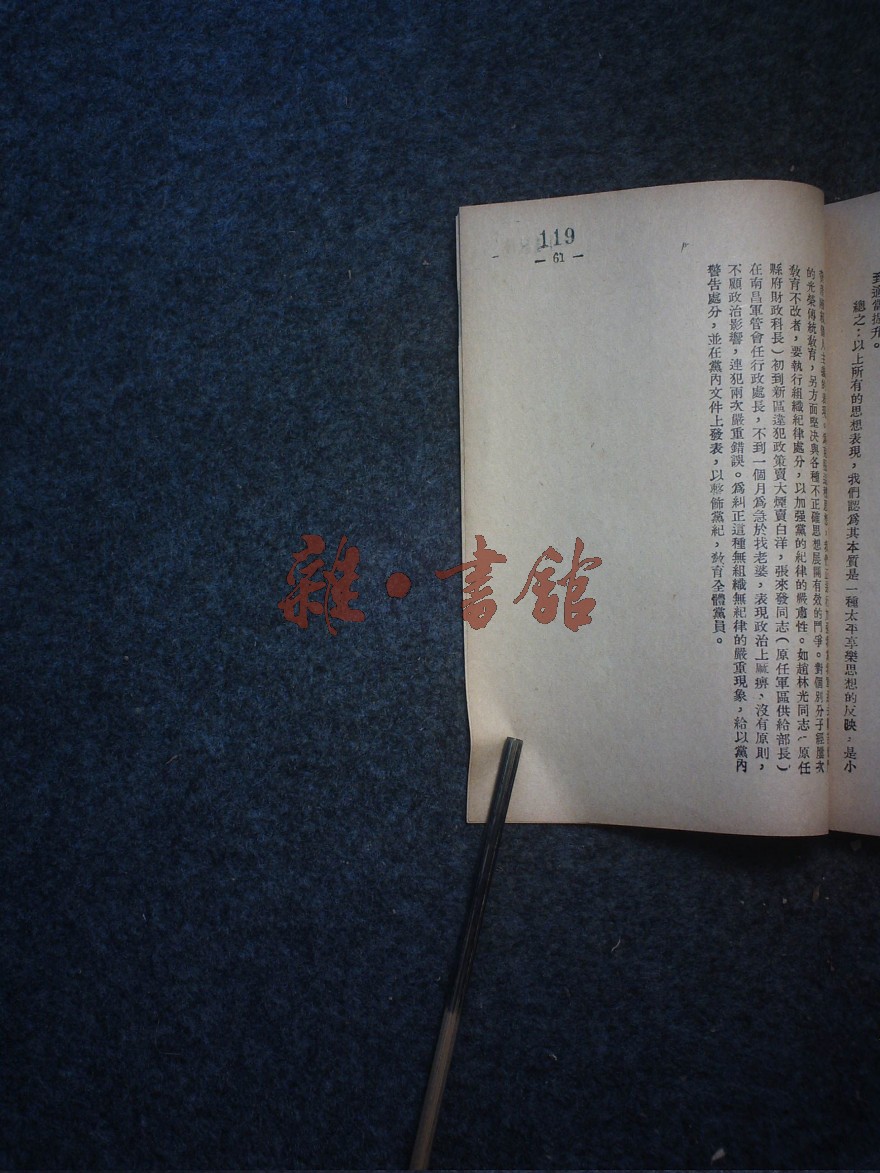 119
— 61 —
到適當提升。
總之，以上所有的思想表現，我們認爲其本質是一種太平享樂思想的反映，是小
的光榮傳統敎育，另方面堅决與各種不正確思想展開有效的鬥爭。對個別分子經屢次
敎育不改者，要執行組織紀律處分，以加强黨的紀律的嚴肅性。如趙林光同志（原任
縣府財政科長）初到新區違犯政策賣大煙賣白洋，張來發同志（原任軍區供給部長）
在南昌軍管會任行政處長，不到一個月爲急於找老婆，表現政治上麻痹，沒有原則，
不顧政治影響，連犯兩次嚴重錯誤。爲糾正這種無組織無紀律的嚴重現象，給以黨內
警告處分，並在黨內文件上發表，以整飭黨紀，敎育全體黨員。
雜·書館